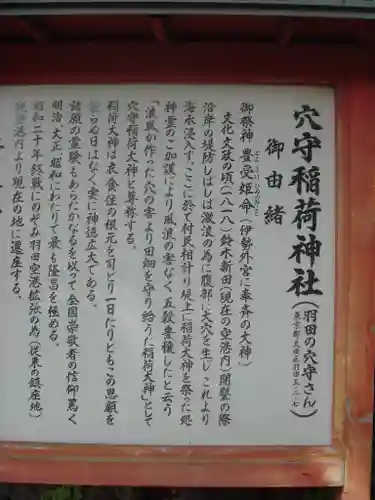 穴守稲荷神社(羽田の穴守さん)
東京都大田区羽田五ノ二ノ七
御由緒
御祭神 豊受姫命(伊勢外宮に奉斉の大神)
とようけひめのみこと
文化文政の頃(一八一八)鈴木新田(現在の空港内)開墾の際
沿岸の堤防しばしば激浪の為に腹部に大穴を生じ これより
海水浸入す。ここに於て村民相計り堤上に稲荷大神を祭った処
神霊のご加護により風浪の害なく、五穀豊穣したと云う
「浪風が作った穴の害より田畑を守り給うた稲荷大神」として
穴守稲荷大神と尊称する。
稲荷大神は衣食住の根元を司どり一日たりともこの恩頼を
蒙らぬ日はなく実に神徳広大である。
諸願の霊験もあらたかなるを以って全国崇敬者の信仰篤く
明治、大正、昭和にわたりて最も隆昌を極める。
昭和二十年終戦にのぞみ羽田空港拡張の為(従来の鎮座地)
現空港内より現在の地に遷座する。